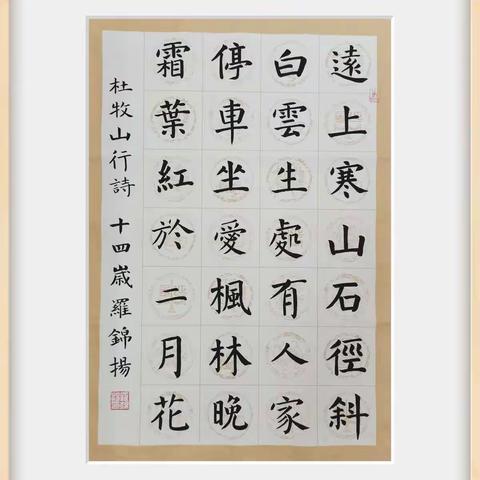 遠上寒山石徑斜
白雲生處有人家
停車坐愛楓林晚
霜葉紅於二月花
杜牧山行詩 十四歲羅錦揚